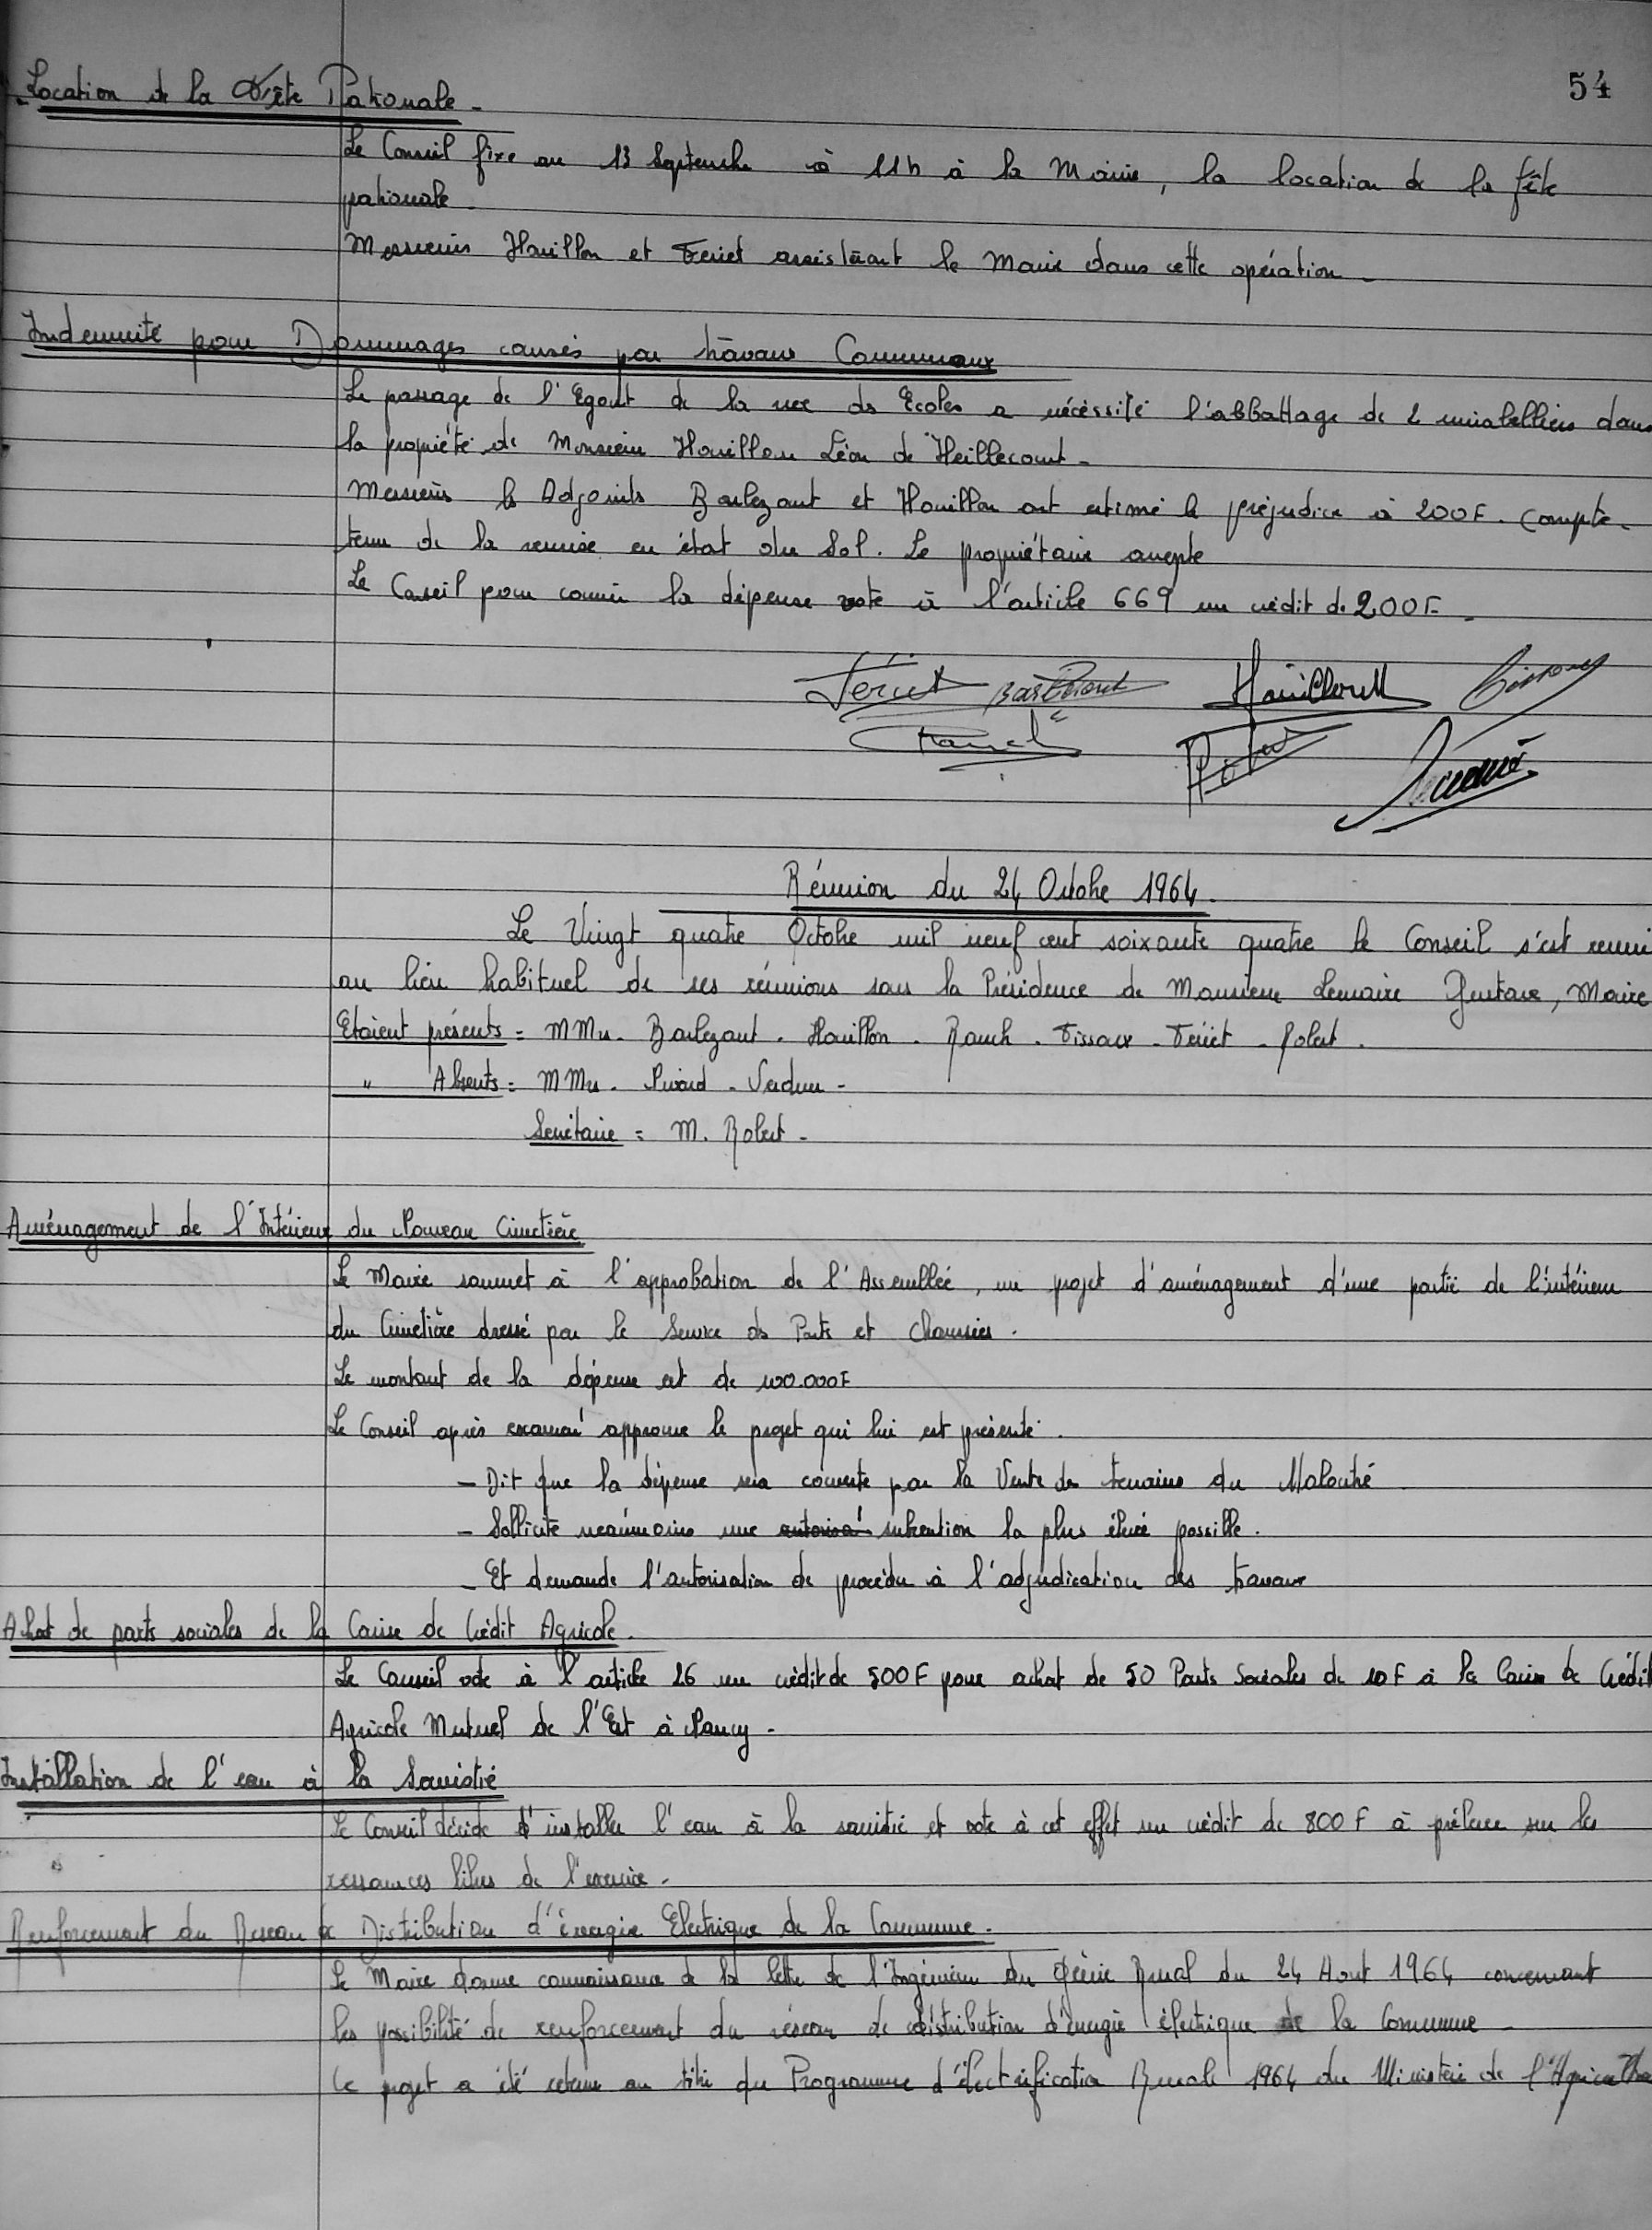 54
Location de la Fête Patronale -
Le Conseil fixe au 13 Septembre à 11h à la Mairie, la location de la fête
patronale.
Messieurs Houillon et Feriet assisteront le Maire dans cette opération -
Indemnité pour Dommages causés par travaux Communaux
Le passage de l'Egout de la rue des Ecoles a nécéssité l'abbattage de 2 mirabelliers dans
la propriété de Monsieur Houillon Léon de Heillecourt -
Messieurs les Adjoints Barlezant et Houillon ont estimé le préjudice à 200F. Compte-
tenu de la remise en état du Sol. Le propriétaire accepte
Le Conseil pour couvrir la dépense vote à l'article 669 un crédit de 200F -
Feriet Houillon
Réunion du 24 Octobre 1964.
Le Vingt quatre Octobre mil neuf cent soixante quatre le Conseil s'est reuni
au lieu habituel de ses réunions sous la Présidence de Monsieur Lemaire Gustave, Maire
Etaient présents = MMrs. Barlezant . Houillon . Rauch . Tissoux - Feriet - Robert .
" Absents = MMrs. - Verdun -
Secrétaire = M. Robert -
Aménagement de l'Intérieur du Nouveau Cimetière
Le Maire soumet à l'approbation de l'Assemblée, un projet d'aménagement d'une partie de l'intérieur
du Cimetière dressé par le Service des Ponts et Chaussées .
Le montant de la dépense est de 100.000F
Le Conseil après examen approuve le projet qui lui est présenté .
- Dit que la dépense sera couverte par la Vente des terrains du
- Sollicite néanmoins une autorisa subvention la plus élevée possible .
- Et demande l'autorisation de procéder à l'adjudication des travaux
Achat de parts sociales de la Caisse de Crédit Agricole.
Le Conseil vote à l'article 26 un crédit de 500F pour achat de 50 Parts Sociales de 10F à la Caisse de Crédit
Agricole Mutuel de l'Est à Nancy -
Installation de l'eau à la Sacristie
Le Conseil décide d'installer l'eau à la sacristie et vote à cet effet un crédit de 800F à prélever sur les
ressources libres de l'exercice .
Renforcement du Reseau de Distribution d'énergie Electrique de la Commune .
Le Maire donne connaissance de la lettre de l'Ingénieur du Génie Rural du 24 Aout 1964 concernant
les possibilité de renforcement du réseau de distribution d'énergie électrique de la Commune -
Ce projet a été retenu au titre du Programme d'électrification Rurale 1964 du Ministère de l'Agriculture